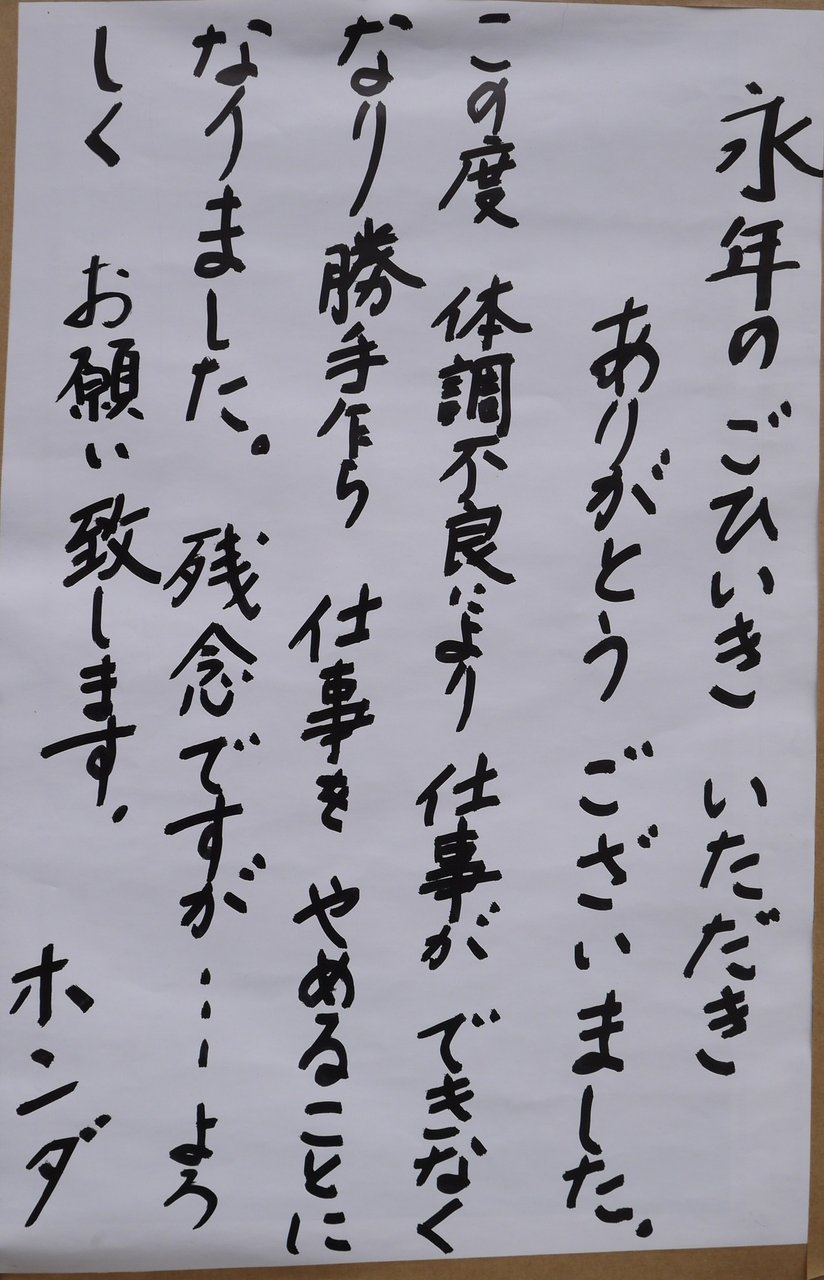 永年の ごひいき いただき
ありがとう ございました。
この度 体調不良により 仕事が できなく
なり 勝手乍ら 仕事を やめることに
なりました。 残念ですが…… よろ
しく お願い致します。
ホンダ